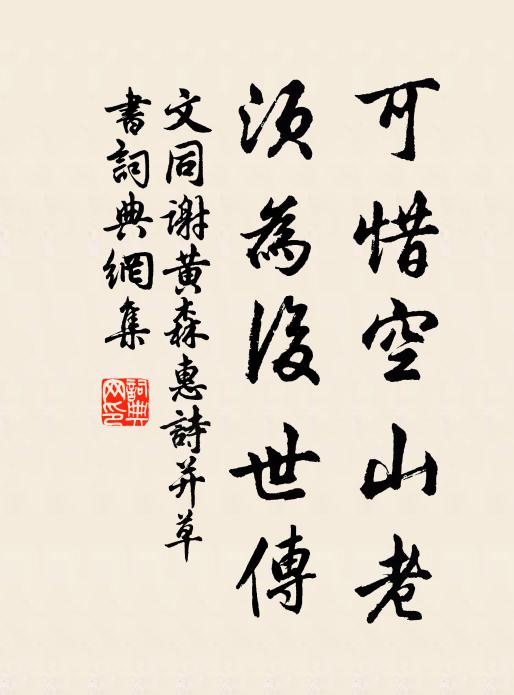 可惜空山老
須為後世傳
文同謝黃森惠詩并草
書詞典網集
詞典
网印